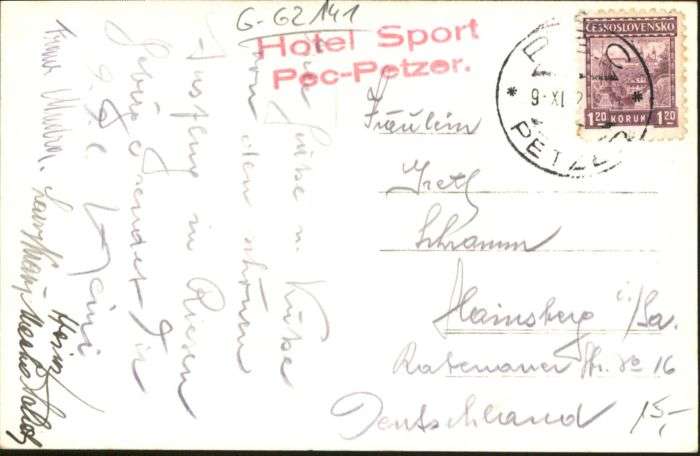 G-G2141
Hotel Sport
Pec-Petzer.
ČESKOSLOVENSKO
1 20 KORUN 1 20
PETZER
9 XI
Fräulein
Gretl
Schramm
Hainsberg i/Sa.
Ratenauer Str. No 16
Deutschland
15,-
Grüße u. Küsse
von den schönen
Ausflug in Riesen
gebirge sendet Dir
Heini
Heinz